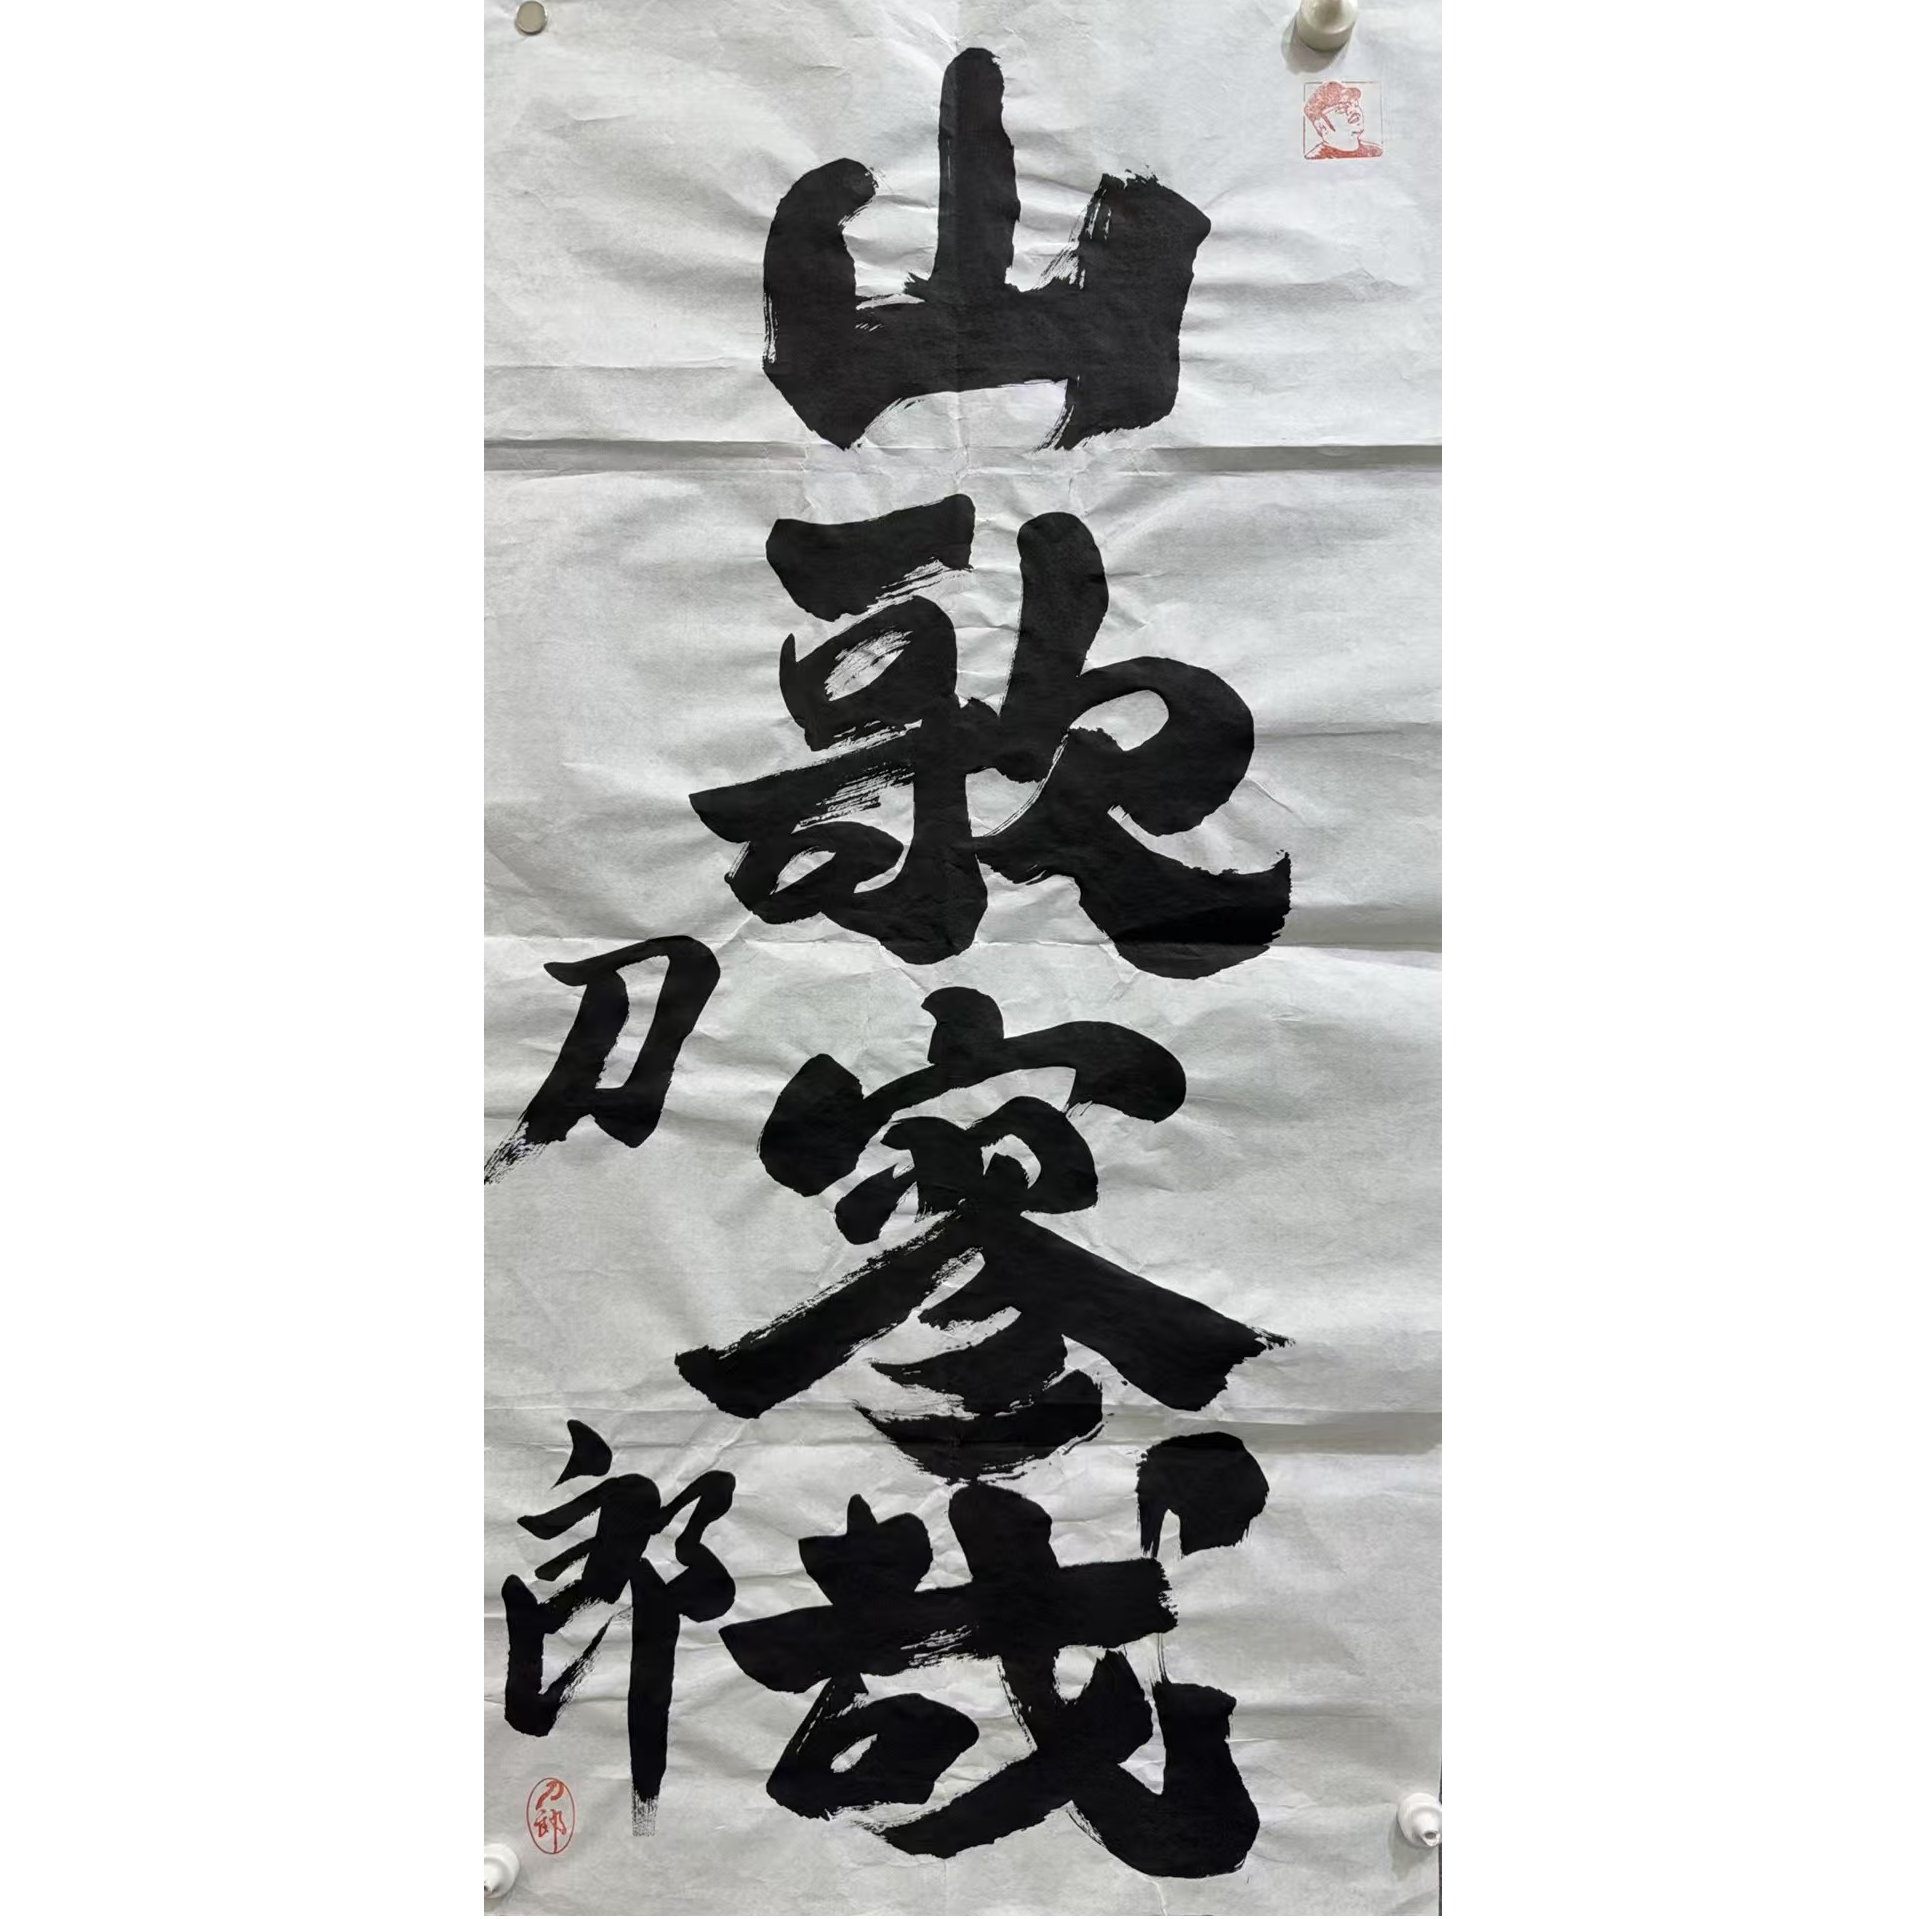 山歌寥哉
刀郎
刀郎